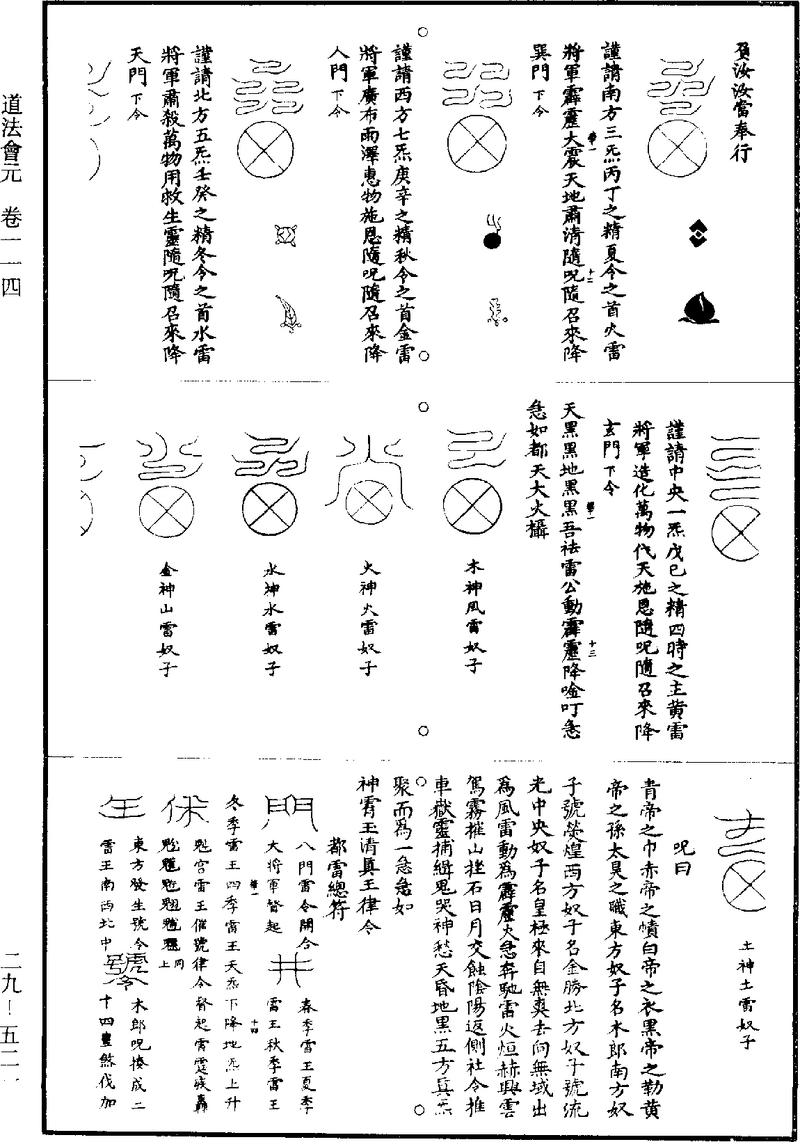 道法會元　卷一一四
二九—五二一
負汝汝當奉行
謹請南方三炁丙丁之精夏令之首火雷
將軍霹靂大震天地肅清隨呪隨召來降
巽門下令
謹請西方七炁庚辛之精秋令之首金雷
將軍廣布雨澤惠物施恩隨呪隨召來降
人門下令
謹請北方五炁壬癸之精冬令之首水雷
將軍肅殺萬物用救生靈隨呪隨召來降
天門下令
謹請中央一炁戊己之精四時之主黃雷
將軍造化萬物代天施恩隨呪隨召來降
玄門下令
天黑黑地黑黑吾祛雷公動霹靂降唫叮急
急如都天大火攝
木神風雷奴子
火神火雷奴子
水神水雷奴子
金神山雷奴子
土神土雷奴子
呪曰
青帝之巾赤帝之幘白帝之衣黑帝之勒黃
帝之孫太昊之職東方奴子名木郎南方奴
子號熒煌西方奴子名金勝北方奴子號流
光中央奴子名皇極來自無爽去向無域出
爲風雷動爲霹靂火急奔馳雷火烜赫興雲
駕霧摧山挫石日月交蝕陰陽返側社令推
車嶽靈捕緝鬼哭神愁天昏地黑五方真炁
聚而爲一急急如
神霄玉清真王律令
都雷總符
門
八門雷令開合
大將軍督起
井
春季雷王夏季
雷王秋季雷王
冬季雷王四季雷王天炁下降地炁上升
魁宮雷王催號律令督起雷霆疾轟
同上
東方發生號令
雷王南西北中
木郎呪揍成二
十四疊煞伐加